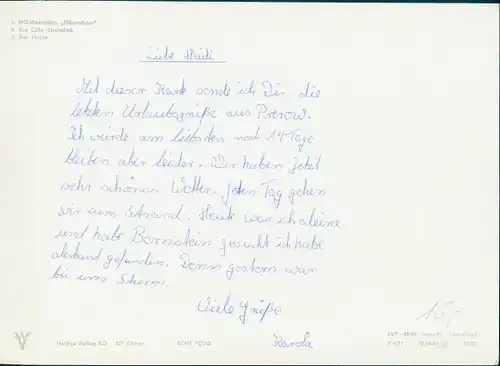 1. HO-Gaststätte „Dünenhaus"
2. Am Café Strandeck
3. Am Strand
Liebe Heidi
Mit dieser Karte sende ich Dir die
letzten Urlaubsgrüße aus Prerow.
Ich würde am liebsten noch 14 Tage
bleiben aber leider. Wir haben jetzt
sehr schönes Wetter. Jeden Tag gehen
wir zum Strand. Heute war ich alleine
und habe Bernstein gesucht ich habe
allerhand gefunden. Denn gestern war
bei uns Sturm.
Viele Grüße
Karola
ECHT FOTO